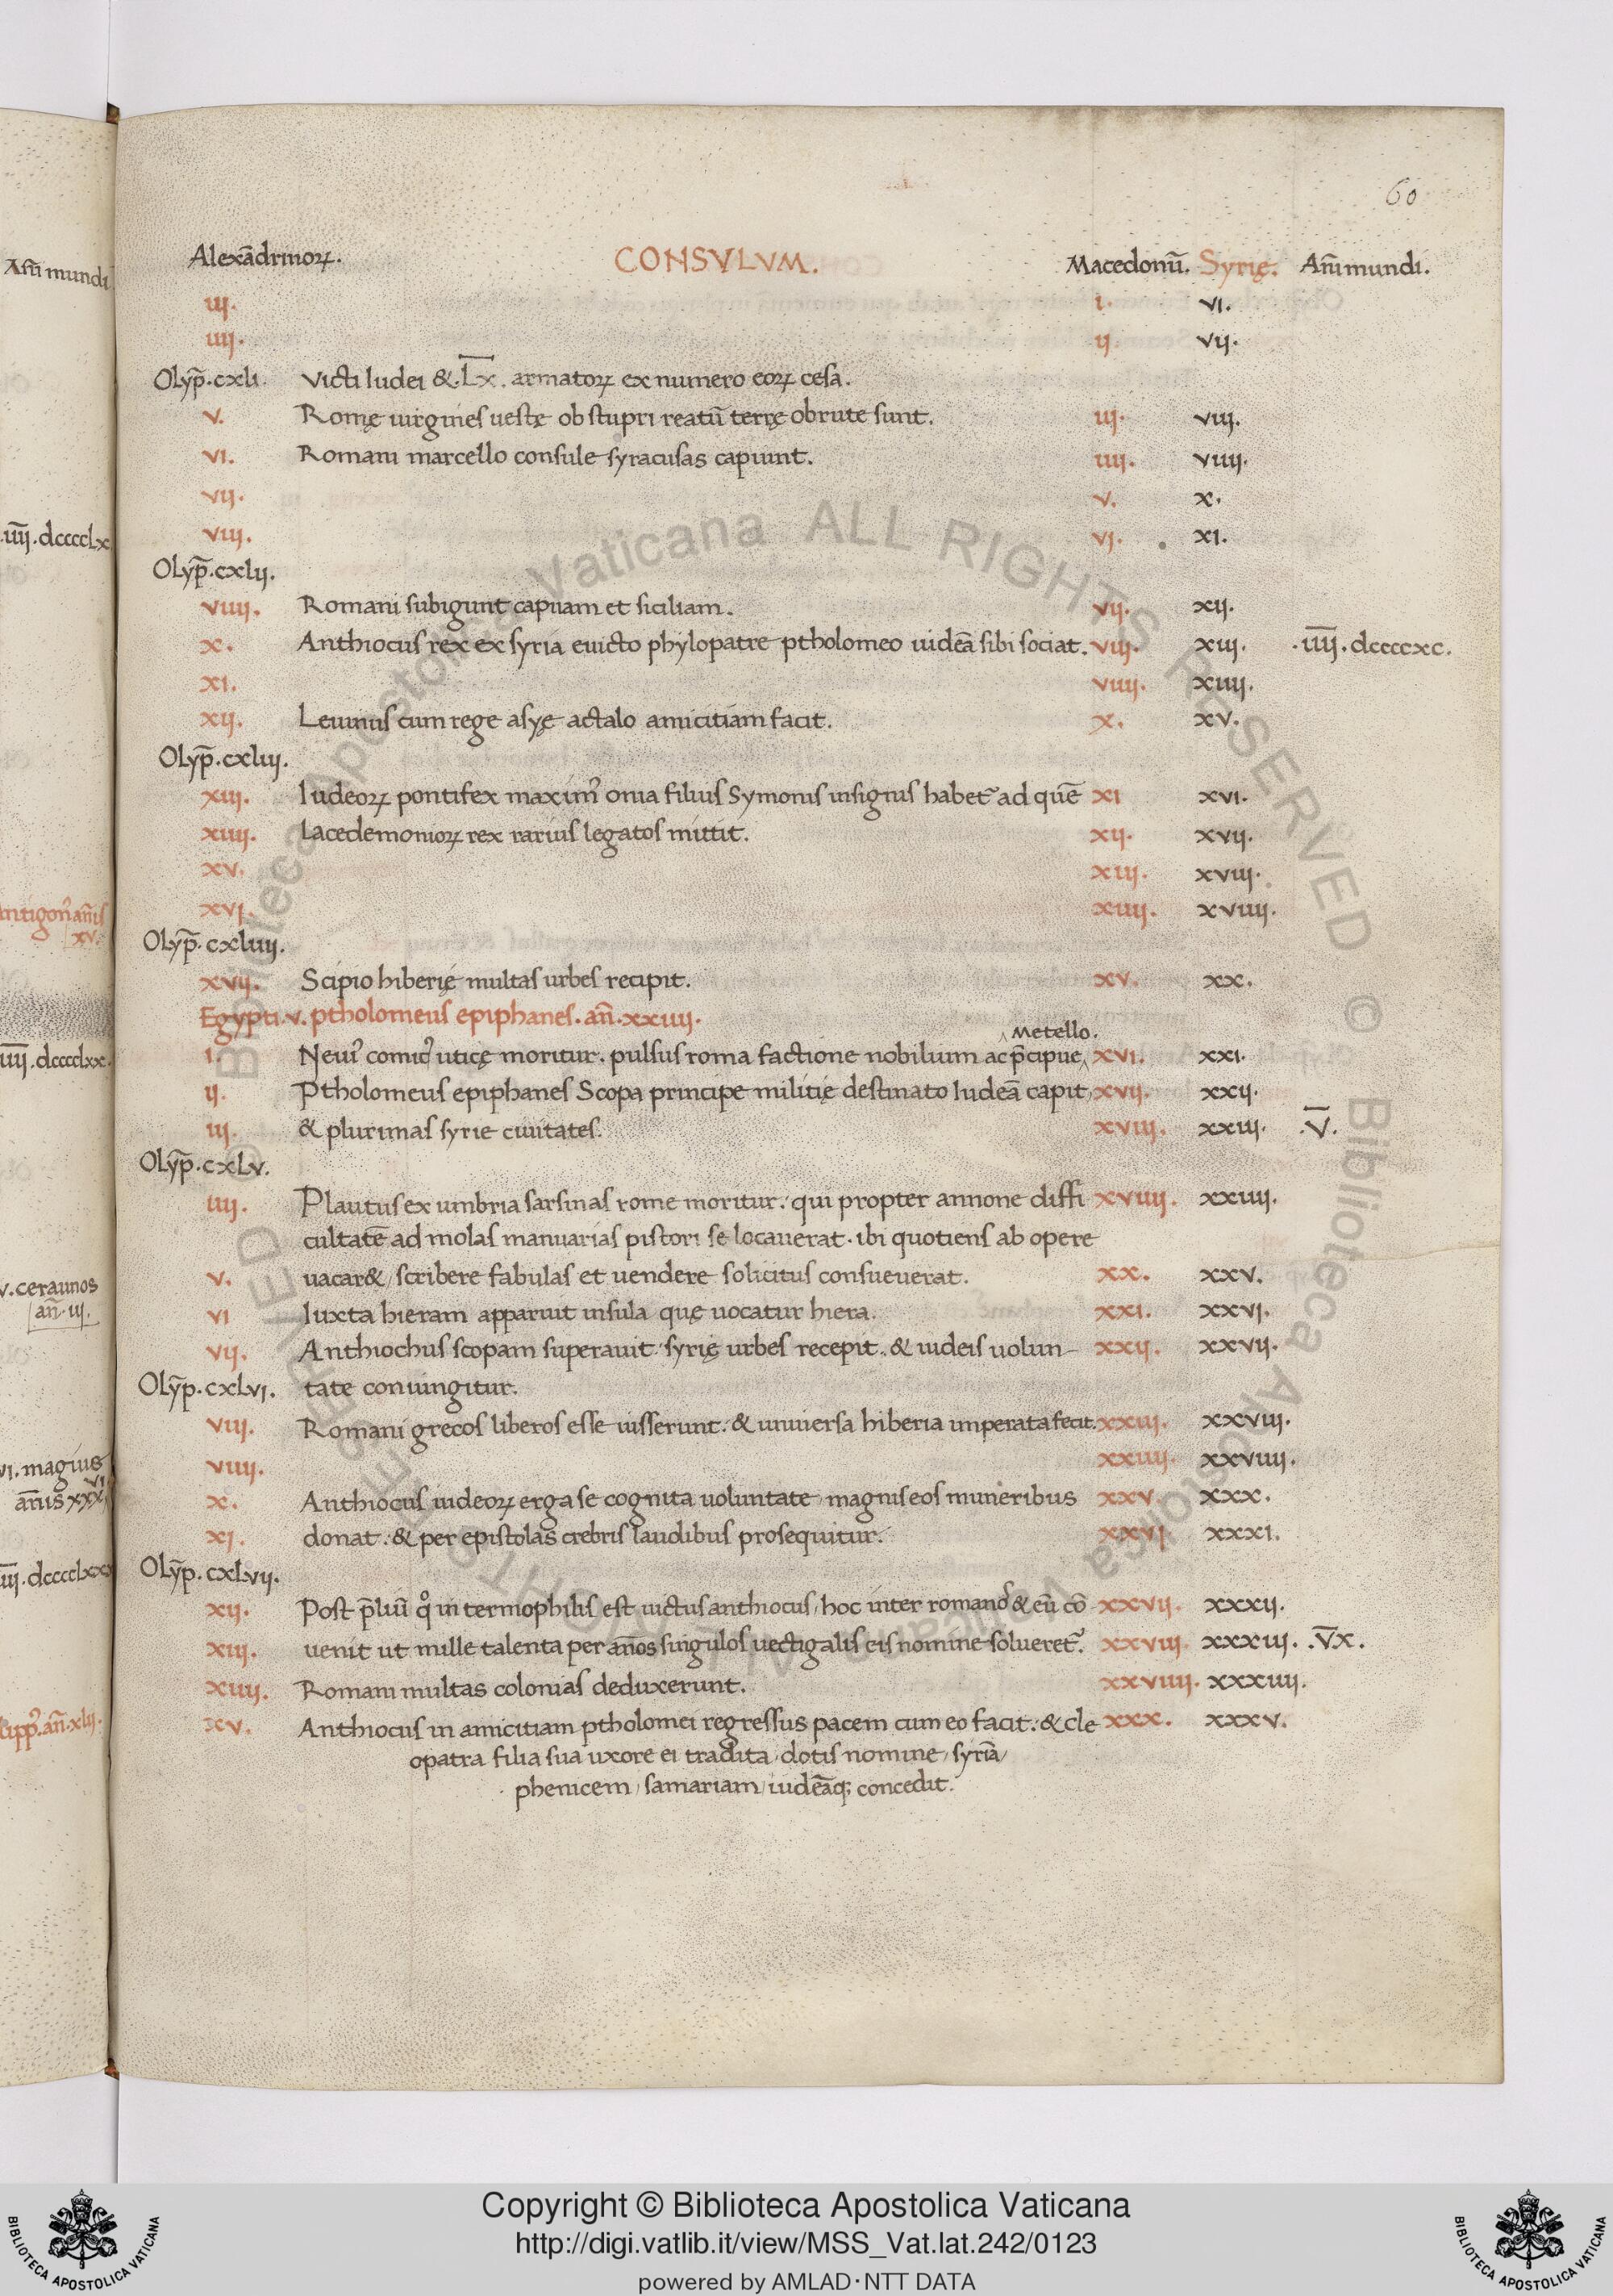 60
Alexādrinoꝝ. CONSVLVM. Macedonū. Syrię. Añi mundi.
iij. i. vi.
iiij. ij vij.
Olyp̄.cxli. Victi Iudei &.L̅x̅. armatoꝝ ex numero eoꝝ cesa.
v. Romę uirgines uestę ob stupri reatū terrę obrute sunt. iij. viij.
vi. Romani marcello consule syracusas capiunt. iiij. viiij.
vij. v. x.
viij. vi. xi.
Olyp̄.cxlij.
viiij. Romani subigunt capuam et siciliam. vij. xij.
x. Anthiocus rex ex syria euicto phylopatre ptholomeo iudeā sibi sociat. viij. xiij. .i̅i̅i̅j̅.dccccxc.
xi. viiij. xiiij.
xij. Leuinus cum rege asyę actalo amicitiam facit. x. xv.
Olyp̄.cxliij.
xiij. Iudeoꝝ pontifex maximꝰ onia filius Symonis insignis habet᷑ ad quē xi xvi.
xiiij. Lacedemonioꝝ rex rarius legatos mittit. xij. xvij.
xv. xiij. xviij.
xvi. xiiij. xviiij.
Olyp̄.cxliiij.
xvij. Scipio hiberię multas urbes recipit. xv. xx.
Egypti.v. ptholomeus epiphanes. añ.xxiiij.
Metello.
i. Neuiꝰ comicꝰ uticę moritur. pulsus roma factione nobilium ac p̄cipue xvi. xxi.
ij. Ptholomeus epiphanes Scopa principe militię destinato Iudeā capit, xvij. xxij.
iij. & plurimas syrie ciuitates. xviij. xxiij. .V̅.
Olyp̄.cxlv.
iiij. Plautus ex umbria sarsinas rome moritur. qui propter annone diffi xviiij. xxiiij.
cultatē ad molas manuarias pistori se locauerat. ibi quotiens ab opere
v. uacar&, scribere fabulas et uendere solicitus consueuerat. xx. xxv.
vi Iuxta hieram apparuit insula quę uocatur hiera. xxi. xxvi.
vij. Anthiochus scopam superauit. syrię urbes recepit. & iudeis uolun- xxij. xxvij.
Olyp̄.cxlvi. tate coniungitur.
viij. Romani grecos liberos esse iusserunt. & uniuersa hiberia imperata fecit. xxiij. xxviij.
viiij. xxiiij xxviiij.
x. Anthiocus iudeoꝝ erga se cognita uoluntate, magnis eos muneribus xxv. xxx.
xi. donat. & per epistolas crebris laudibus prosequitur. xxvi xxxi.
Olyp̄.cxlvij.
xij. Post p̄liū qͦ in termophilis est uictus anthiocus, hoc inter romanos & eū cō xxvij. xxxij.
xiij. uenit ut mille talenta per años singulos uectigalis eis nomine solueret᷑. xxviij. xxxiij. .V̅x̅.
xiiij. Romani multas colonias deduxerunt. xxviiij. xxxiiij.
xv. Anthiocus in amicitiam ptholomei regressus pacem cum eo facit. & cle xxx. xxxv.
opatra filia sua uxore ei tradita, dotis nomine, syriā,
phenicem, samariam, iudeāq; concedit.
Añi mundi
.i̅i̅i̅j̅.dcccclx
antigonꝰ añis
xv.
i̅i̅i̅j̅.dcccclxx.
v. ceraunos
añ. iij.
vi. magius
añis xxxvi
i̅i̅i̅j̅.dcccclxxx
lippꝰ. añ. xlij.
© Biblioteca Apostolica Vaticana ALL RIGHTS RESERVED © Biblioteca Apostolica Vaticana ALL RIGHTS RESERVED
Copyright © Biblioteca Apostolica Vaticana
http://digi.vatlib.it/view/MSS_Vat.lat.242/0123
powered by AMLAD·NTT DATA
BIBLIOTECA APOSTOLICA VATICANA
BIBLIOTECA APOSTOLICA VATICANA